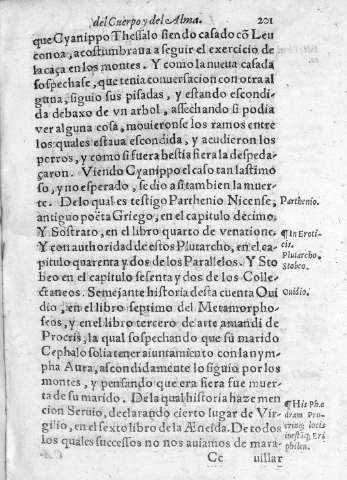 del Cuerpo y del Alma. 201
que Cyanippo Thessalo siendo casado cō Leu
conoa, acostumbraua a seguir el exercicio de
la caça en los montes. Y como la nueua casada
sospechasse, que tenia conuersacion con otra al
guna, siguio sus pisadas, y estando escondi-
da debaxo de vn arbol, assechando si podia
ver alguna cosa, mouieronse los ramos entre
los quales estaua escondida, y acudieron los
perros, y como si fuera bestia fiera la despeda-
çaron. Viendo Cyanippo el caso tan lastimo
so, y no esperado, se dio a si tambien la muer-
te. De lo qual es testigo Parthenio Nicense,
Parthenio.
antiguo poëta Griego, en el capitulo decimo.
Y Sostrato, en el libro quarto de venatione.
¶In Eroti-
Y con authoridad de estos Plutarcho, en el ca-
cis.
pitulo quarenta y dos de los Parallelos. Y Sto
Plutarcho.
beo en el capitulo sesenta y dos de los Colle-
Stobeo.
ctaneos. Semejante historia desta cuenta Oui
Ouidio.
dio, en el libro septimo del Metamorpho-
seos, y en el libro tercero de arte amandi de
Procris, la qual sospechando que su marido
Cephalo solia tener aiuntamiento con la nym-
pha Aura, ascondidamente lo siguio por los
montes, y pensando que era fiera fue muer-
ta de su marido. De la qual historia haze men
¶His Phæ
cion Seruio, declarando cierto lugar de Vir-
dram Pro
gilio, en el sexto libro de la Æneida. De todos
crinq; locis
los quales successos no nos auiamos de mara-
mœstāq; Eri
philen.
Cc uillar